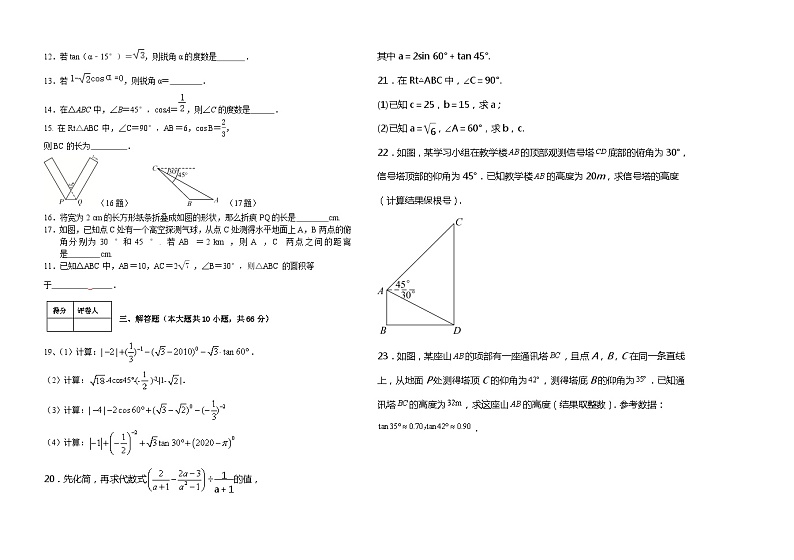 12．若 tan(α﹣15°)＝√3，则锐角 α 的度数是______．
13．若 1-√2cosα=0，则锐角 α＝______．
14．在△ABC 中，∠B＝45°，cosA＝1/2，则∠C 的度数是______．
15. 在 Rt△ABC 中，∠C＝90°，AB＝6，cosB＝2/3，
则 BC 的长为________．
P Q （16题） C 30° 45° B A （17题）
16．将宽为 2 cm的长方形纸条折叠成如图的形状，那么折痕 PQ的长是________cm.
17．如图，已知点 C 处有一个高空探测气球，从点 C 处测得水平面上 A，B 两点的俯
角分别为 30°和 45°．若 AB＝2 km，则 A，C 两点之间的距离
是________cm.
11．已知△ABC 中，AB=10，AC=2√7，∠B=30°，则△ABC 的面积等
于______________．
得分 评卷人
三、解答题（本大题共 10 小题，共 66 分）
19、（1）计算：|−2|+(1/3)⁻¹−(√3−2010)⁰−√3·tan 60°．
（2）计算：√18-4cos45°(-1/2)⁻²-|1-√2|．
（3）计算：|−4|−2cos60°+(√3−√2)⁰−(−1/3)⁻²
（4）计算：|−1|+(−1/2)⁻²+√3tan30°+(2020−π)⁰
20．先化简，再求代数式(2/(a+1)−(2a−3)/(a²−1))÷1/(a+1)的值，
其中 a＝2sin 60°＋tan 45°.
21．在 Rt△ABC 中，∠C＝90°.
(1)已知 c＝25，b＝15，求 a；
(2)已知 a＝√6，∠A＝60°，求 b，c.
22．如图，某学习小组在教学楼AB的顶部观测信号塔CD底部的俯角为 30°，
信号塔顶部的仰角为 45°．已知教学楼AB的高度为 20m，求信号塔的高度
（计算结果保根号）．
C
A 45° 30°
B D
23．如图，某座山AB的顶部有一座通讯塔BC，且点 A，B，C 在同一条直线
上，从地面 P处测得塔顶 C 的仰角为42°，测得塔底 B的仰角为35°．已知通
讯塔BC的高度为32m，求这座山AB的高度（结果取整数）．参考数据：
tan35°≈0.70,tan42°≈0.90．